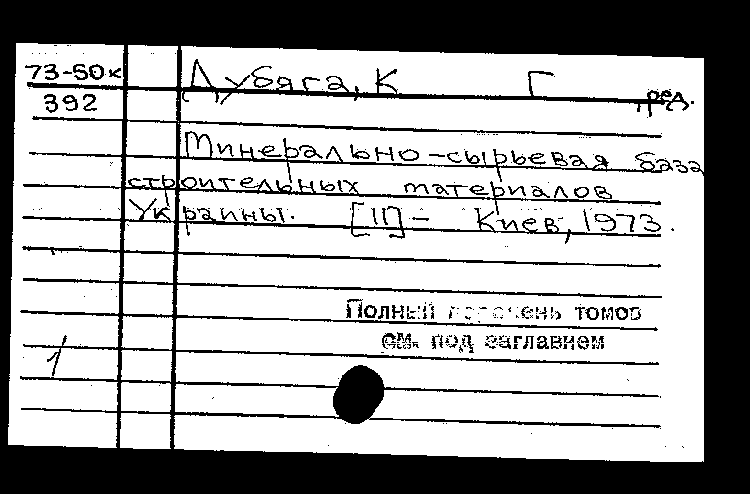 73-50к Дубяга, К Г ред.
392
Минерально-сырьевая база
строительных материалов
Украины. [II] - Киев, 1973.
Полный перечень томов
см. под заглавием
1